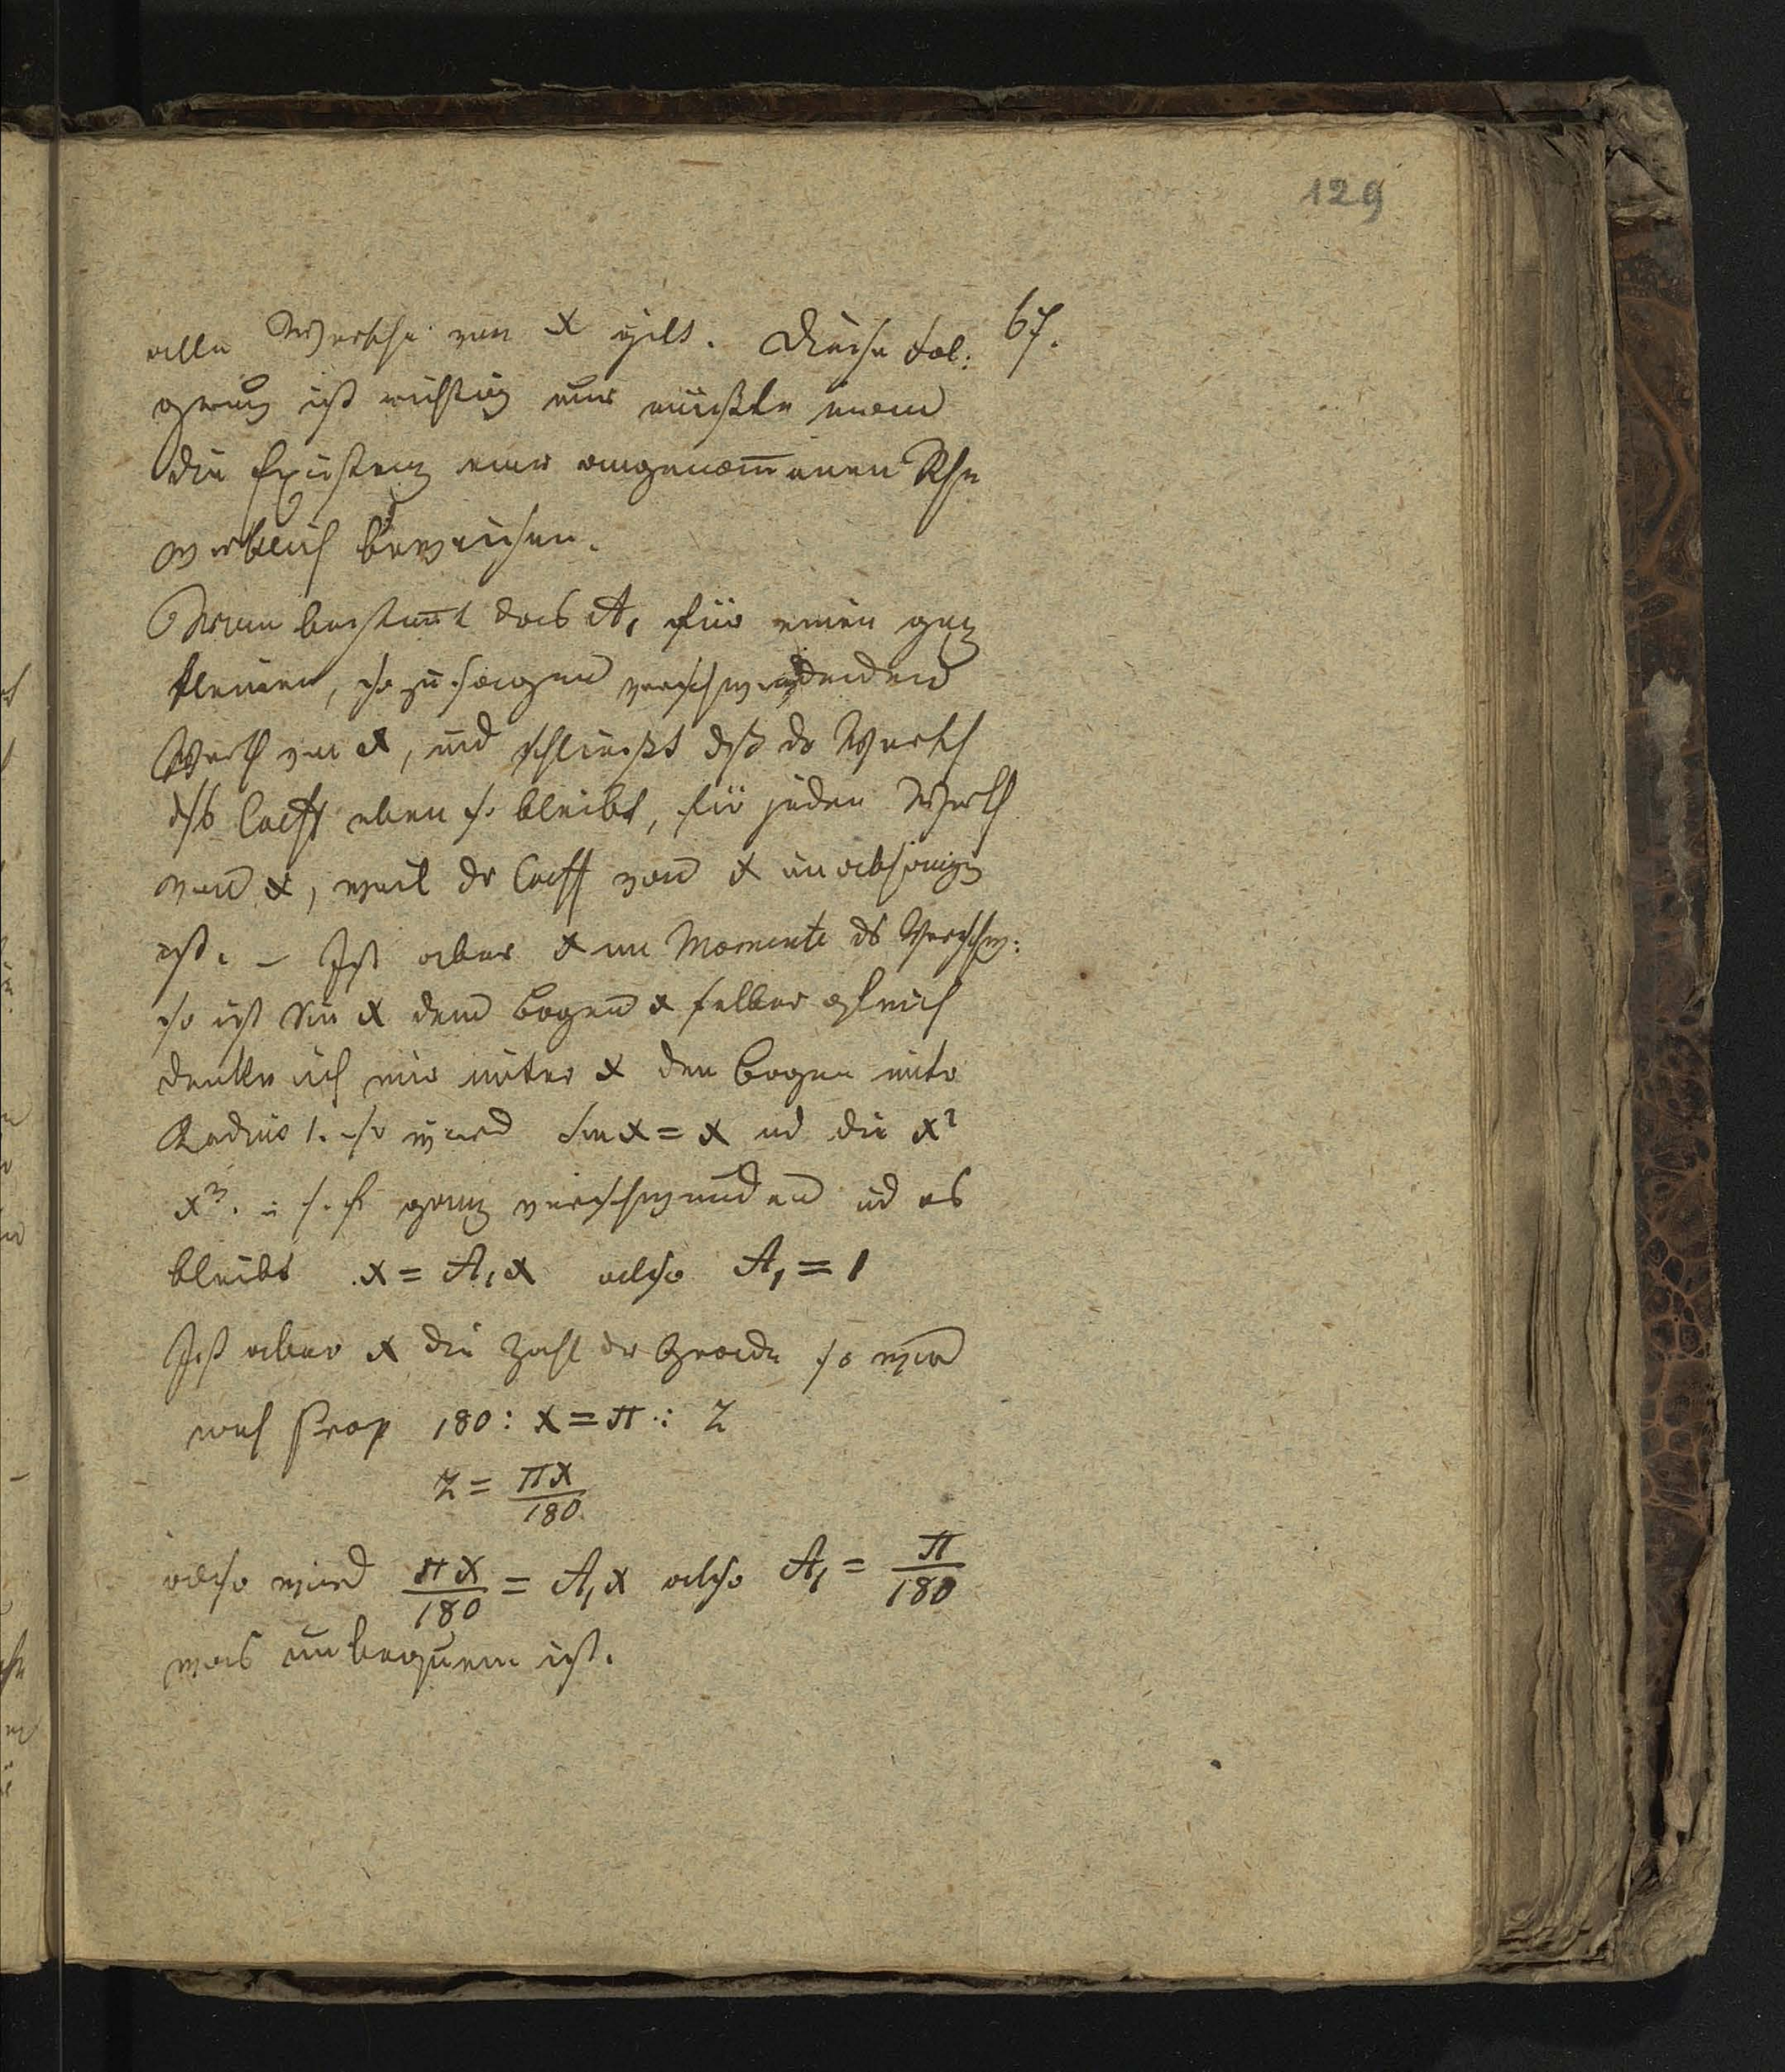 129
67.
alle Werthe von x gilt. Diese Fol:
gerung ist richtig nur müßte man
die Existenz einer angenom̅enen Rhe
wirklich beweisen.
Man bestim̅t das A₁ für einen gnz
kleinen, so zu sagen verschwindenden
Werth von x, und schließt dß dr Werth
ds Coeff eben so bleibt, für jeden Werth
von x, weil dr Coeff von x unabhängig
ist. – Ist aber x im Momente ds Verschw:
so ist Sin x dem Bogen x selber gleich
denke ich mir unter x den Bogen mit
Radius 1. so wird Sin x = x ud die x²
x³. u s. f. ganz verschwinden ud es
bleibt x = A₁x also A₁ = 1
Ist aber x die Zahl der Grade so wird
nach Prop 180 : x = π : z
z = πx/180
also wird πx/180 = A₁x also A₁ = π/180
was unbequem ist.